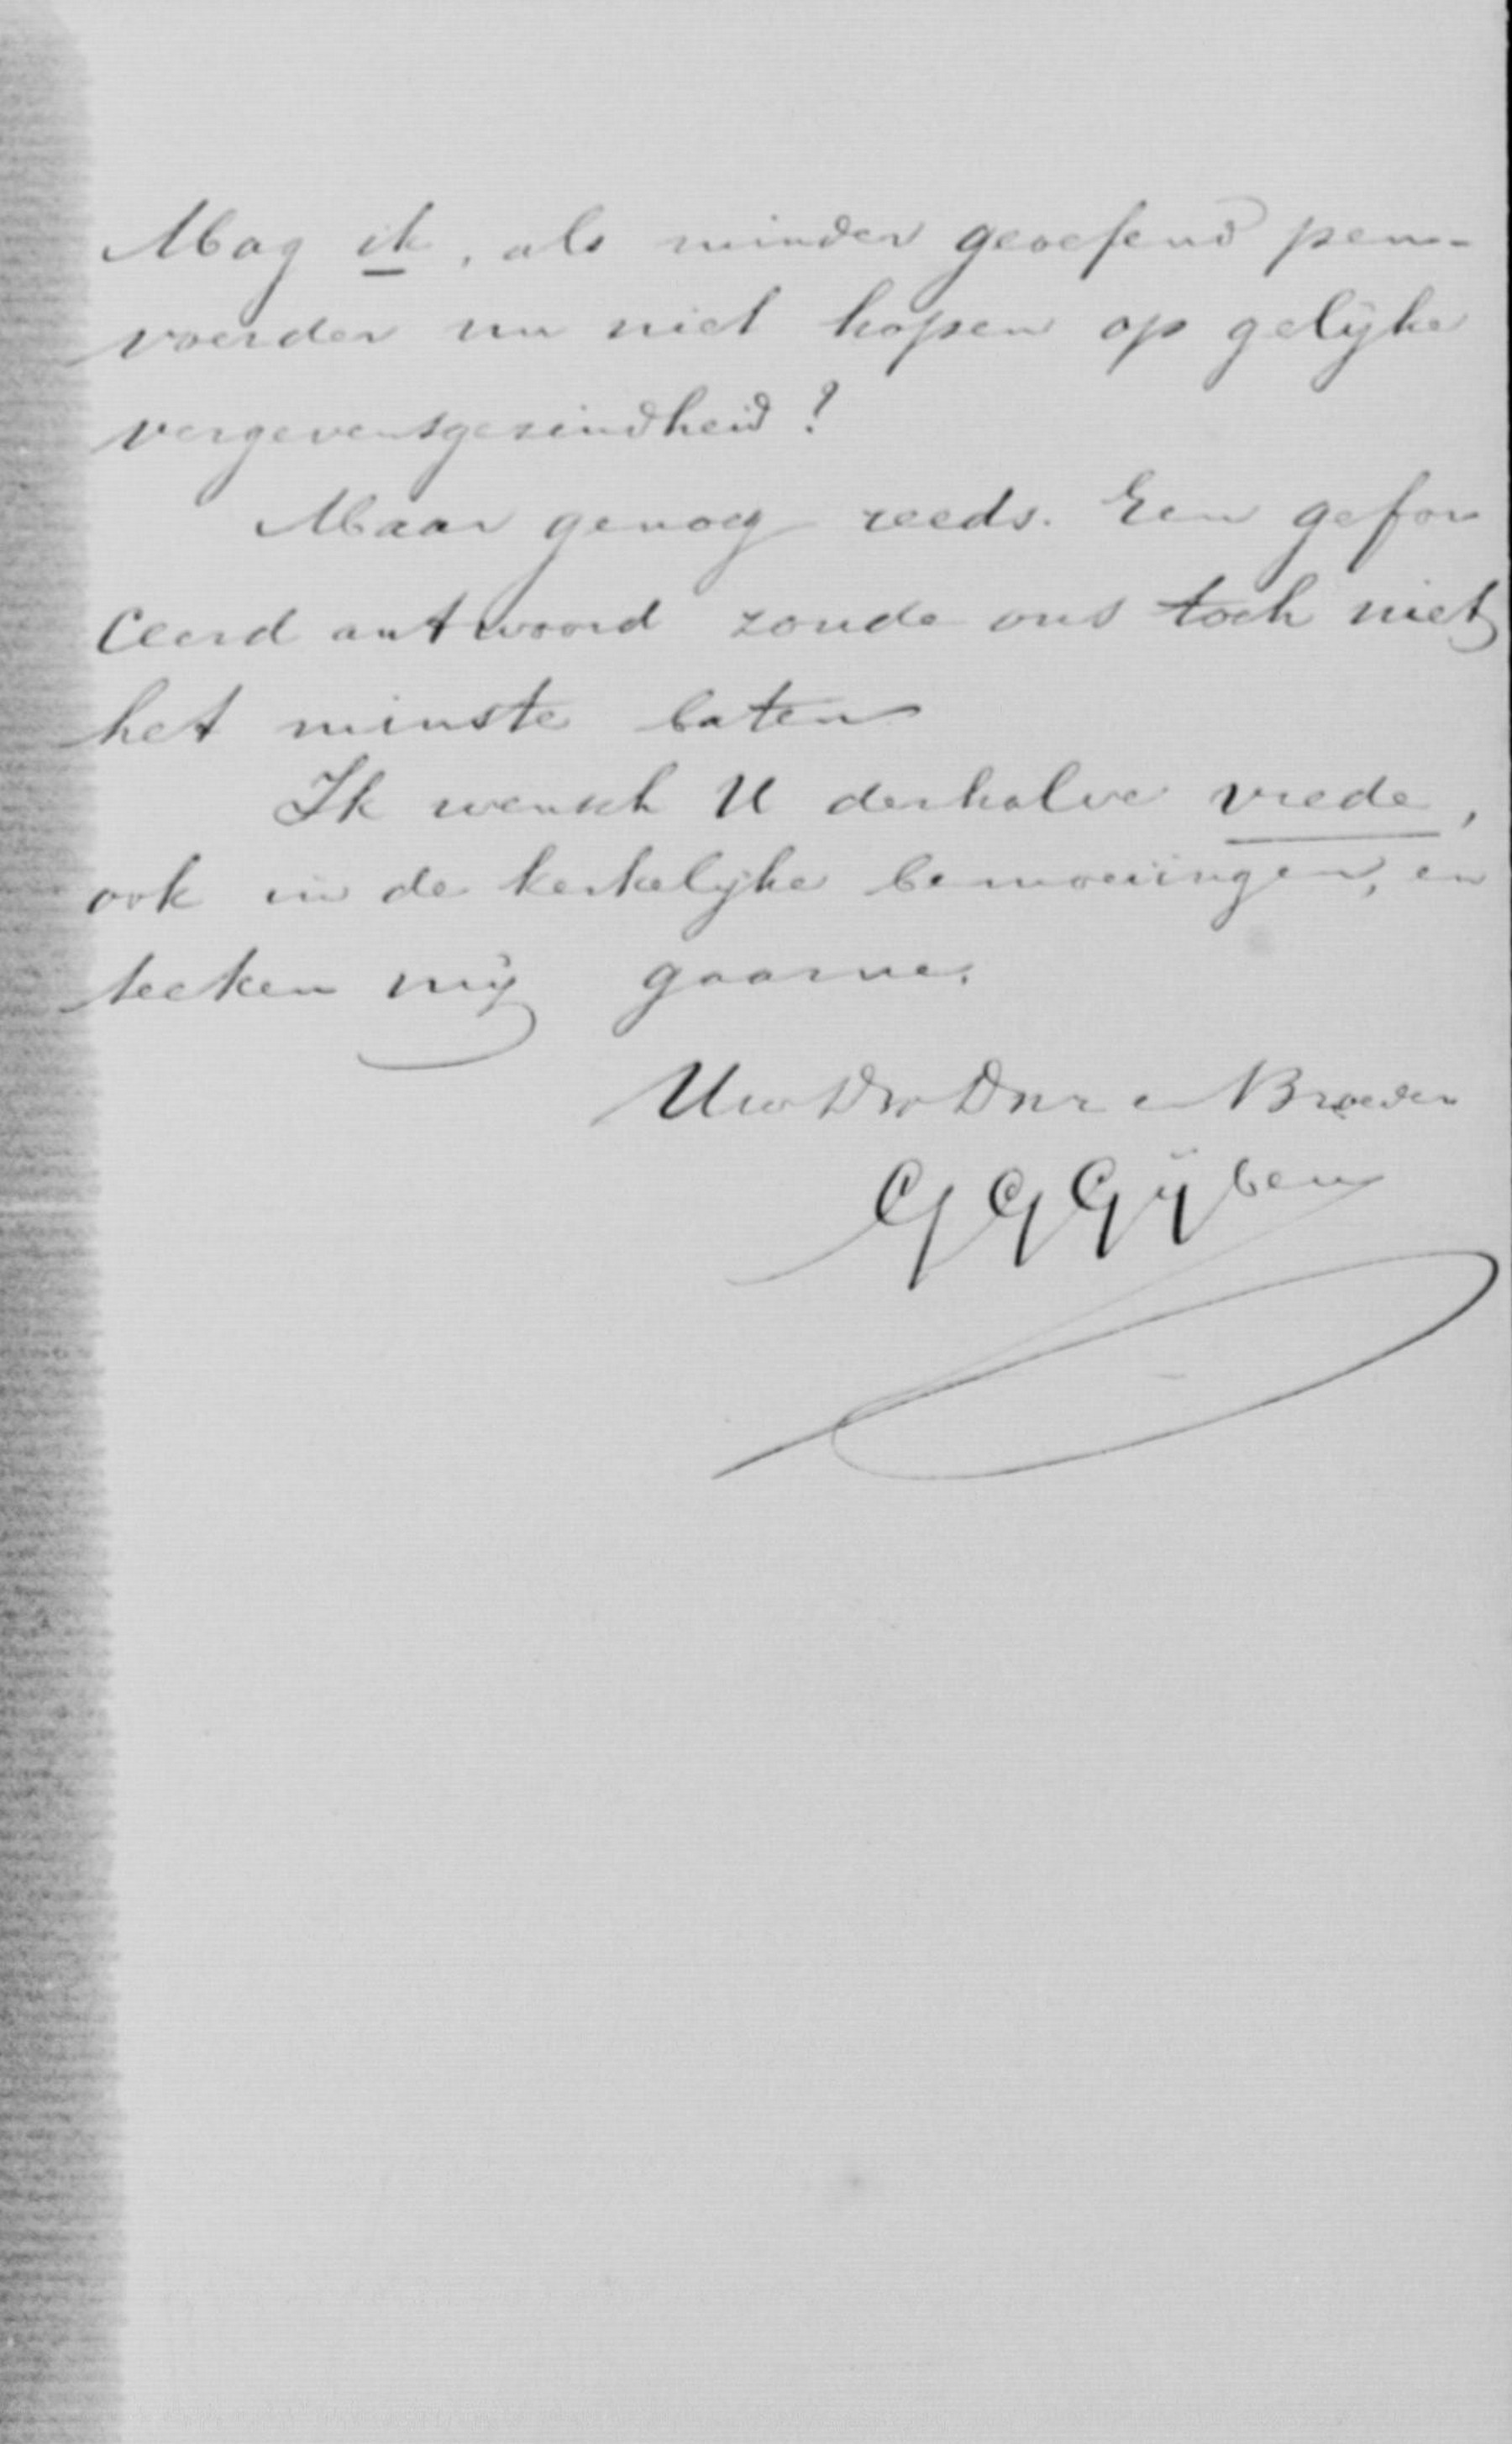 Mag ik, als minder geoefend pen-
voerder nu niet hopen op gelijke
vergevensgezindheid?
Maar genoeg reeds. Een gefor
ceerd antwoord zoude ons toch niet
het minste baten
Ik wensch U derhalve vrede,
ook in de kerkelijke bemoeiingen, en
teeken mij gaarne.
Uw Dw Dnr en Broeder
G G Gijben